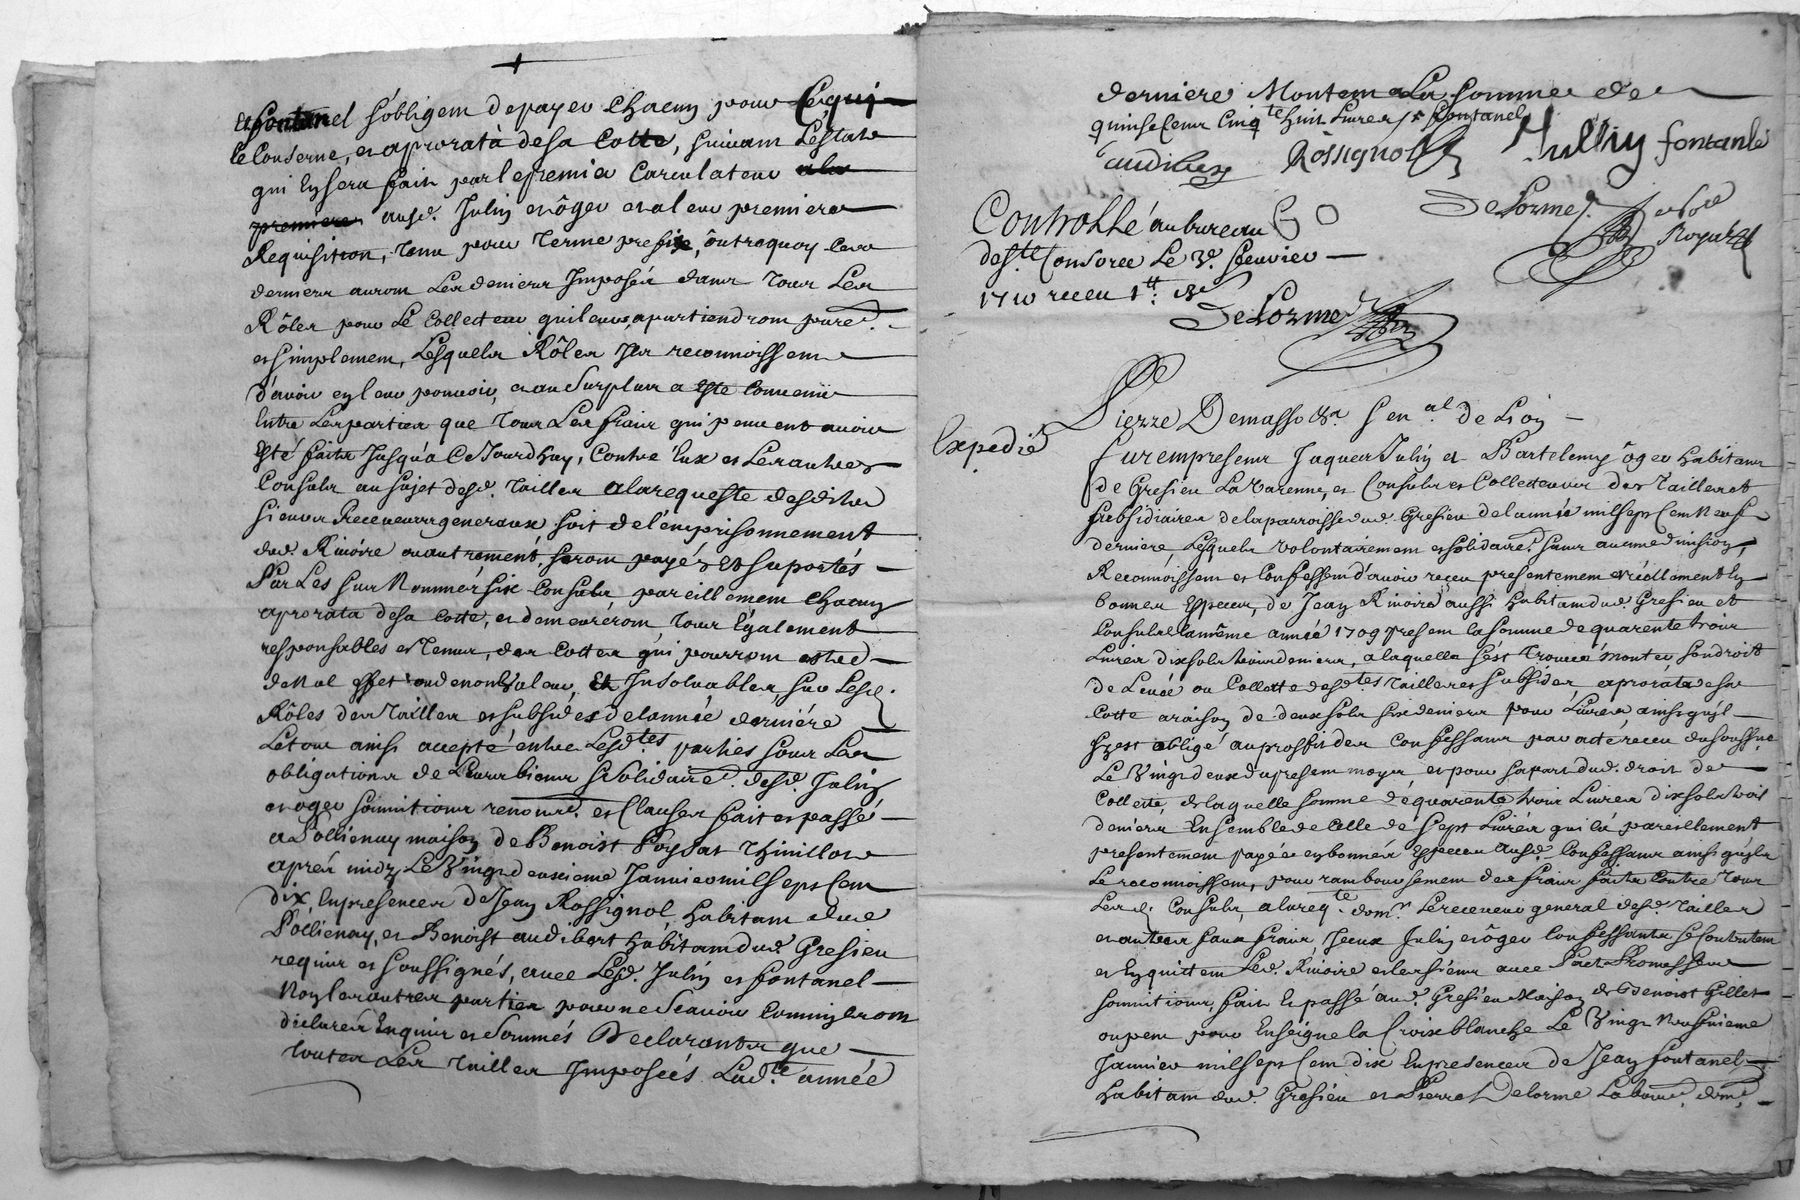 et fontanel s'obligem de payer chacun pour ce qui
le conserne, et aprorata de sa cotte, suivam l'estat
qui en sera fait par le premier carculateur a la
premiere ausd. Julin et ôger et a leur premiere
Requisition, tenu pour terme prefixe, outre quoy ces
derniers auront les deniers Imposés dans tous les
Rôles pour le collecteur qui leurs apartiendrom pured.
et simplemen, lesquels Rôles Ils reconnoissem
d'avoir en leur pouvoir, et au surplus a esté convenu
Entre les parties que tous les frais qui peuvent avoir
Esté faits Jusqu'a ce Jourdhuy, contre Eux et les autres
Consuls au sujet desd. tailles a la requeste desdits
sieurs Receveurs generaux soit de l'emprisonnement
dud. Rivoire ou autrement, serom payés et suportés
Par les sus Nommés six consuls pareillemem chacun
aprorata de sa cotte, et demeurerom tous Egalement
responsables et tenus, des cottes qui pourrom estre
de Nul effet ou de non valeur, Et Insolvables sur lesd.
Rôles des tailles et subsides de lannée derniére
Le tout ainsi accepté entre lesd.tes parties sous les
obligations de leurs biens & solidaire. desd. Julin
et oger soumitions renond. et clauses fait et passé
a Pollienay maison de Benoist Poysat Thivillon
aprés midy le vingt deuxieme Janvier mil sept cem
dix, En presences de Jean Rossignol habitam dud
Pollienay, et Benoist audibert habitam dud. Gresieu
requis et soussignés, avec lesd. Julin et fontanel
Non les autres parties pour ne scavoir comm ils om
déclarés Enquis et sommés Declarants que
toutes les tailles Imposées lad.te année
derniere Montem a la somme de
quinse cem cinq.te huit livres / fontanel
audibert Rossignol Jullin fontanel
Delorme
No.re Royal
Controllé au bureau
de s.te Consorce le 3e. fevrier
1710 receu 1 tt:
DeLorme
Pierre Demasso Sen.al de Lion
Expedié
furem presens Jaques Julin et Bartelemy ôger habitans
de Gresieu la varenne, et consuls et collecteurs des tailles et
subsidiaires de la parroisse dud. Gresieu de l'année mil sept cem Neuf
derniere, lesquels volontairemem et solidaire. sans aucune division,
Reconnoissem et confessem d'avoir receu presentemem et réellement En
bonnes Especes, de Jean Rivoire aussi habitam dud. Gresieu et
consul de la même année 1709 presem la somme de quarente trois
Livres dix sols trois deniers, a laquelle s'est trouvé monter son droit
de Levée ou Collette desd.tes tailles et subsides aprorata de sa
cotte a raison de deux sols six deniers pour Livres ainsi qu'il
s'y est obligé au proffit des confessans par acte receu du soussig.e
Le vingt deux du presem moys, et pour sa part dud. droit de
collecte, de laquelle somme de quarente trois Livres dix sols trois
deniers Ensemble de celle de sept Livres qui l'a pareillement
presentemem payée en bonnes Especes ausd. confessans ainsi qu'ils
Le reconnoissem, pour rambourcemem des frais faits contre tous
Lesd. consuls, a la req.te de m.r le receveur general desd. tailles
et autres faux frais, Iceux Julin et ôger confessants se contentem
et En quittem led. Rivoire et les siens avec Pact Promesses
soumitions, fait et passé aud. Gresieu Maison de Benoist Gillet
ou pem pour Enseigne la Croix blanche le vingt Neufvieme
Janvier mil sept cem dix En presences de Jean fontanel
habitam dud. Gresieu et Pierre Delorme